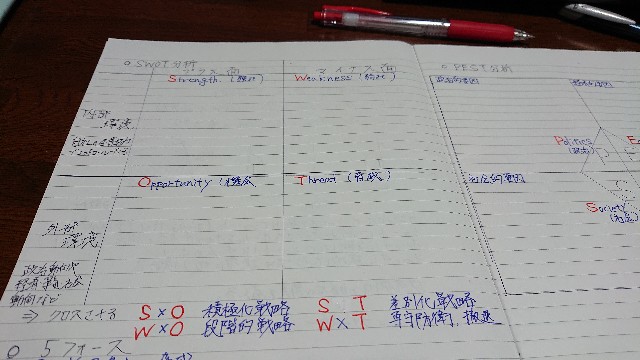 ○ SWOT分析
プラス面
マイナス面
Strength (強み)
Weakness (弱み)
内部
環境
Opportunity (機会
Threat (脅威)
外部
環境
政治動向や
動向など
⇒ クロスさせる
S×O 積極化戦略
S T 差別化戦略
W×O 段階的戦略
W×T 専守防衛、撤退
○ 5フォース
○ PEST分析
政治的要因
Politics
(政治)
社会的要因
Society
(社会)